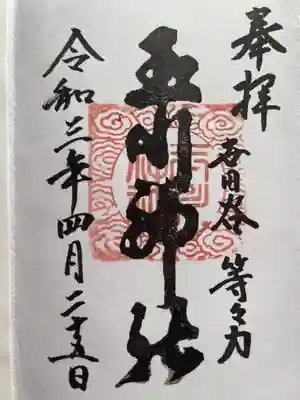 奉拝
世田谷 等々力
玉川神社
令和三年四月二十五日